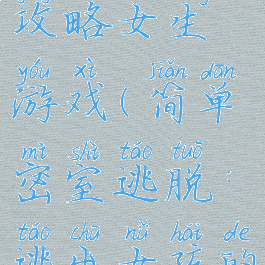 攻略女生
yóu xì jiǎn dān
游戏(简单
mì shì táo tuō
密室逃脱:
táo chū nǚ hái de
逃出女孩的